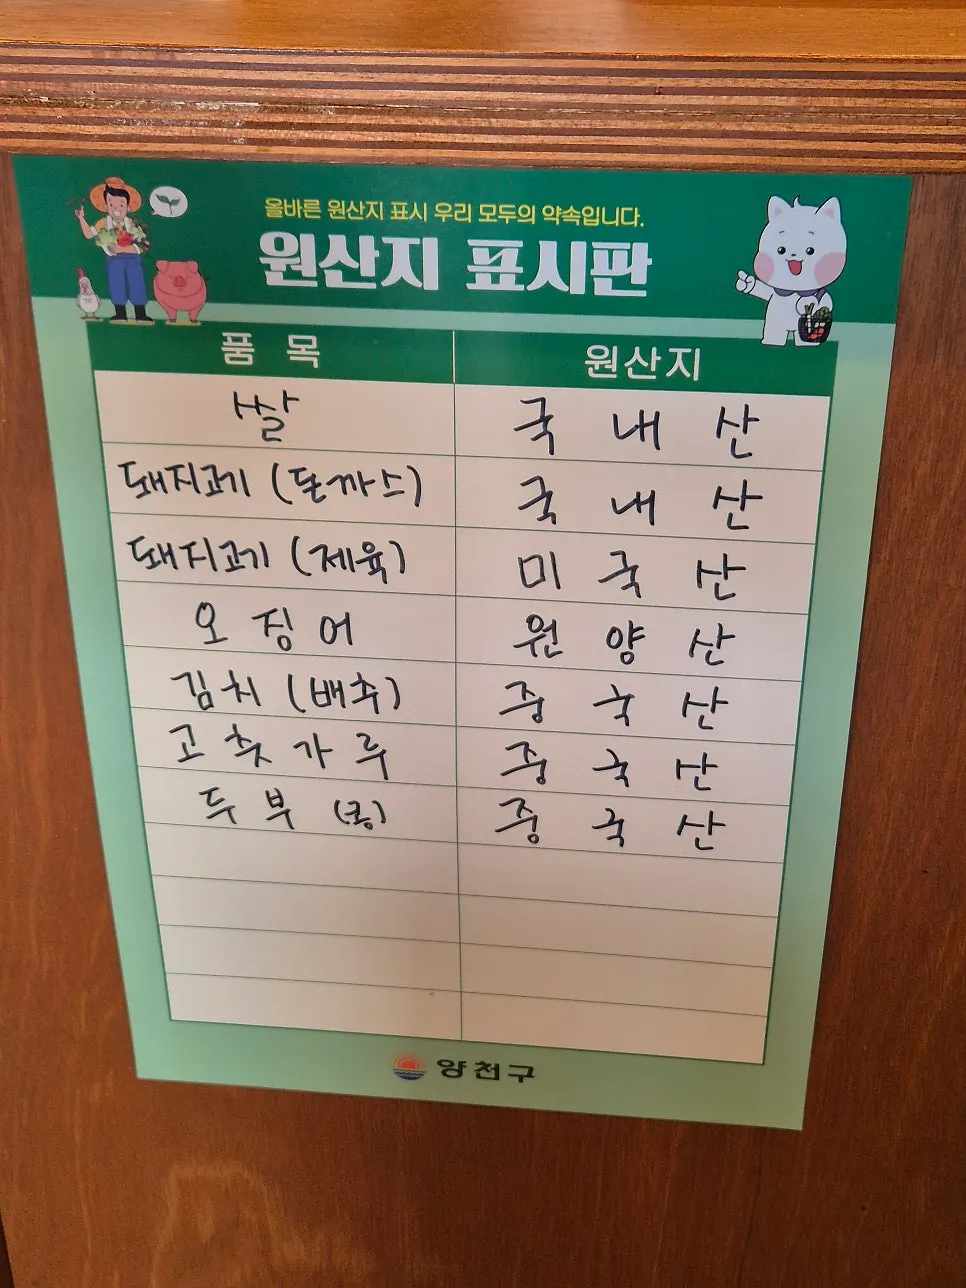 올바른 원산지 표시 우리 모두의 약속입니다.
원산지 표시판
품 목 원산지
쌀 국 내 산
돼지고기 (돈까스) 국 내 산
돼지고기 (제육) 미 국 산
오 징 어 원 양 산
김 치 (배추) 중 국 산
고 춧 가 루 중 국 산
두 부 (콩) 중 국 산
양천구